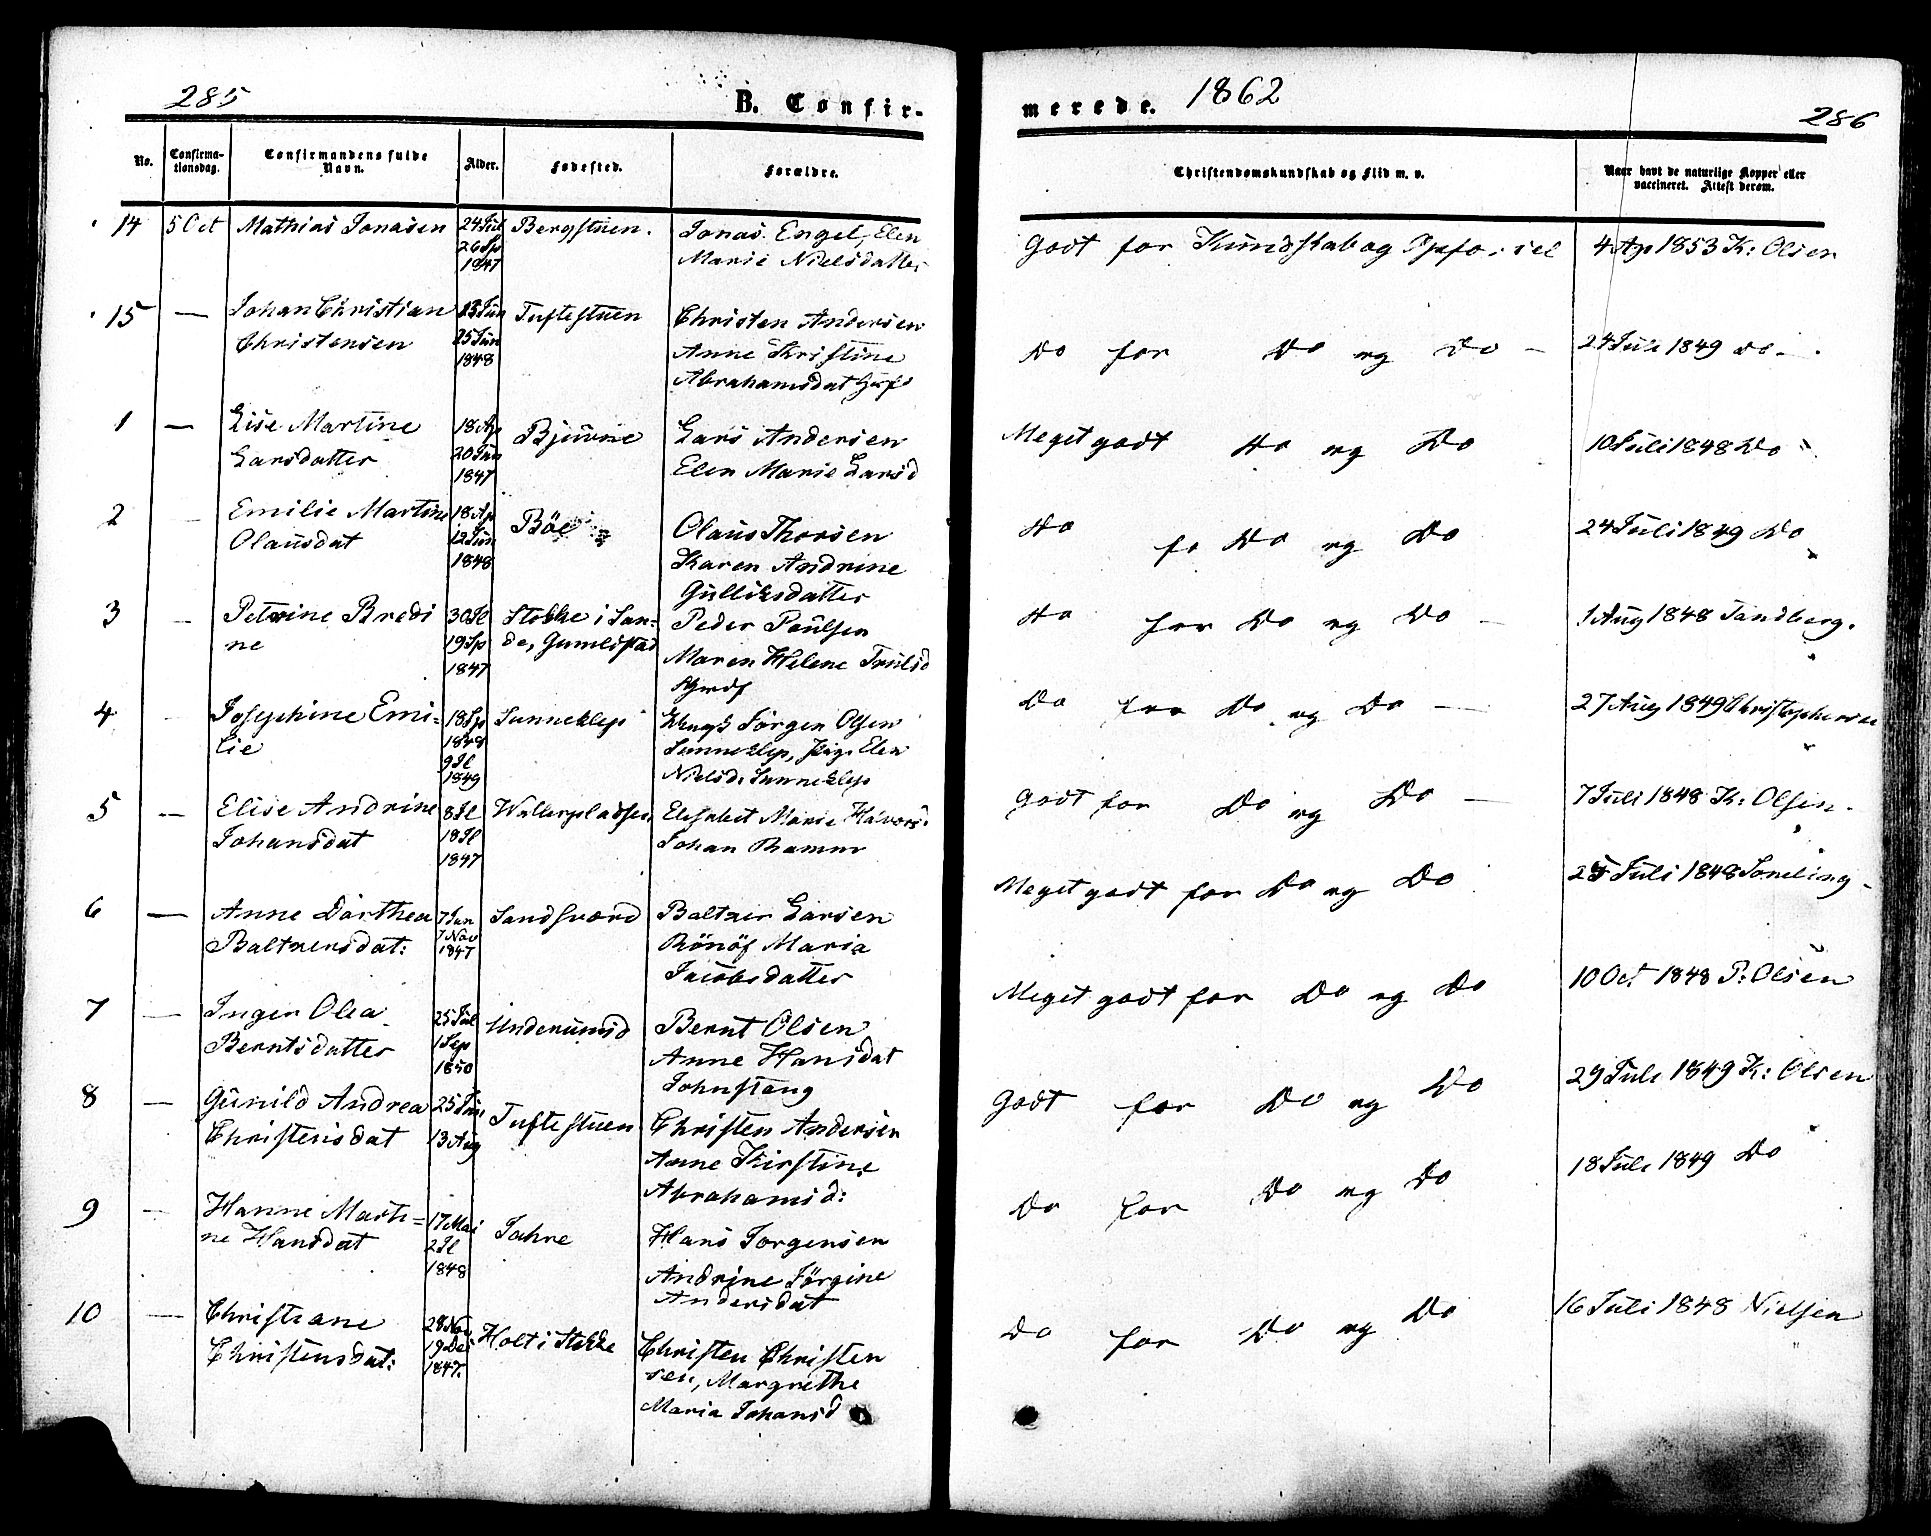 285
B. Confir-
No.
Confirma-
tionsdag.
Confirmandens fulde
Navn.
Alder.
Fødested.
Forældre.
14
5 Oct
Mathias Jonasen
24 Jul
26 Sp
1847
Bergstuen.
Jonas Engel, Elen
Marie Nielsdatter
15
—
Johan Christian
Christensen
25 Jun
1848
Tuftestuen
Christen Andersen
Anne Kristine
Abrahamsdat
1
—
Lise Martine
Larsdatter
18 Ap
20 Jun
1847
Bjerune
Lars Andersen
Elen Marie Larsd
2
—
Emilie Martine
Olausdat
18 Ap
12 Jun
1848
Böe
Olaus Thorsen
Karen Andrine
Gulliksdatter
3
—
Petrine Bredi
ne
30 Jl
19 Sp
1847
Stokke i San-
de, Gumlestad
Peder Paulsen
Maren Helene Trulsd
4
—
Josephine Emi-
lie
18 Sp
1848
9 Jl
1849
Sunneklep
Jørgen Olsen
Sunneklep, Pige Elen
Nielsd. Sunneklep
5
—
Elise Andrine
Johansdat
8 Jl
18 Jl
1847
Wallerpladsen
Elisabet Marie Havorsd.
Johan Rammr
6
—
Anne Dorthea
Baltzersdat:
7 Jun
7 Nov
1847
Sandsværd
Baltzer Larsen
Rönöf Maria
Jacobsdatter
7
—
Inger Olea
Berntsdatter
25 Jul
1 Sep
1850
Underumsd
Bernt Olsen
Anne Hansdat
Johnstang
8
—
Gunild Andrea
Christensdat
25 Jun
13 Aug
Tuftestuen
Christen Andersen
Anne Kirstine
Abrahamsd:
9
—
Hanne Marti-
ne Hansdat
17 Mai
2 Jl
1848
Jahre
Hans Jorgensen
Andrine Jörgine
Andersdat
10
—
Christiane
Christensdat:
28 Nov
19 Dec
1847.
Holt i Stokke
Christen Christen
sen, Margrethe
Maria Johansd
merede. 1862
286
Christendomskundskab og Flid m. v.
Naar havt de naturlige Kopper eller
vaccineret. Attest derom.
Godt for Kundskab og Opförsel
4 Ap 1853 K: Olsen
Do for Do og Do —
24 Juli 1849 Do —
Meget godt Do og Do
10 Juli 1848 Do
Do fo Do og Do
24 Juli 1849 Do
Do for Do og Do —
1 Aug 1848 Sandberg.
Do for Do og Do —
27 Aug 1849 Christophersen
Godt for Do og Do —
7 Juli 1848 K: Olsen.
Meget godt for Do og Do
25 Juli 1848
Meget godt for Do og Do
10 Oct 1848 P: Olsen
Godt for Do og Do
29 Juli 1849 K: Olsen
Do for Do og Do
18 Juli 1849 Do
Do for Do og Do
16 Juli 1848 Nielsen